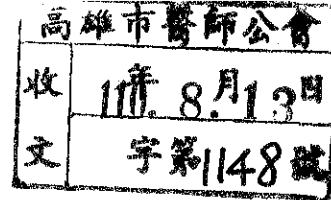 高雄市醫師公會
收文
110年8月13日
字第1148號